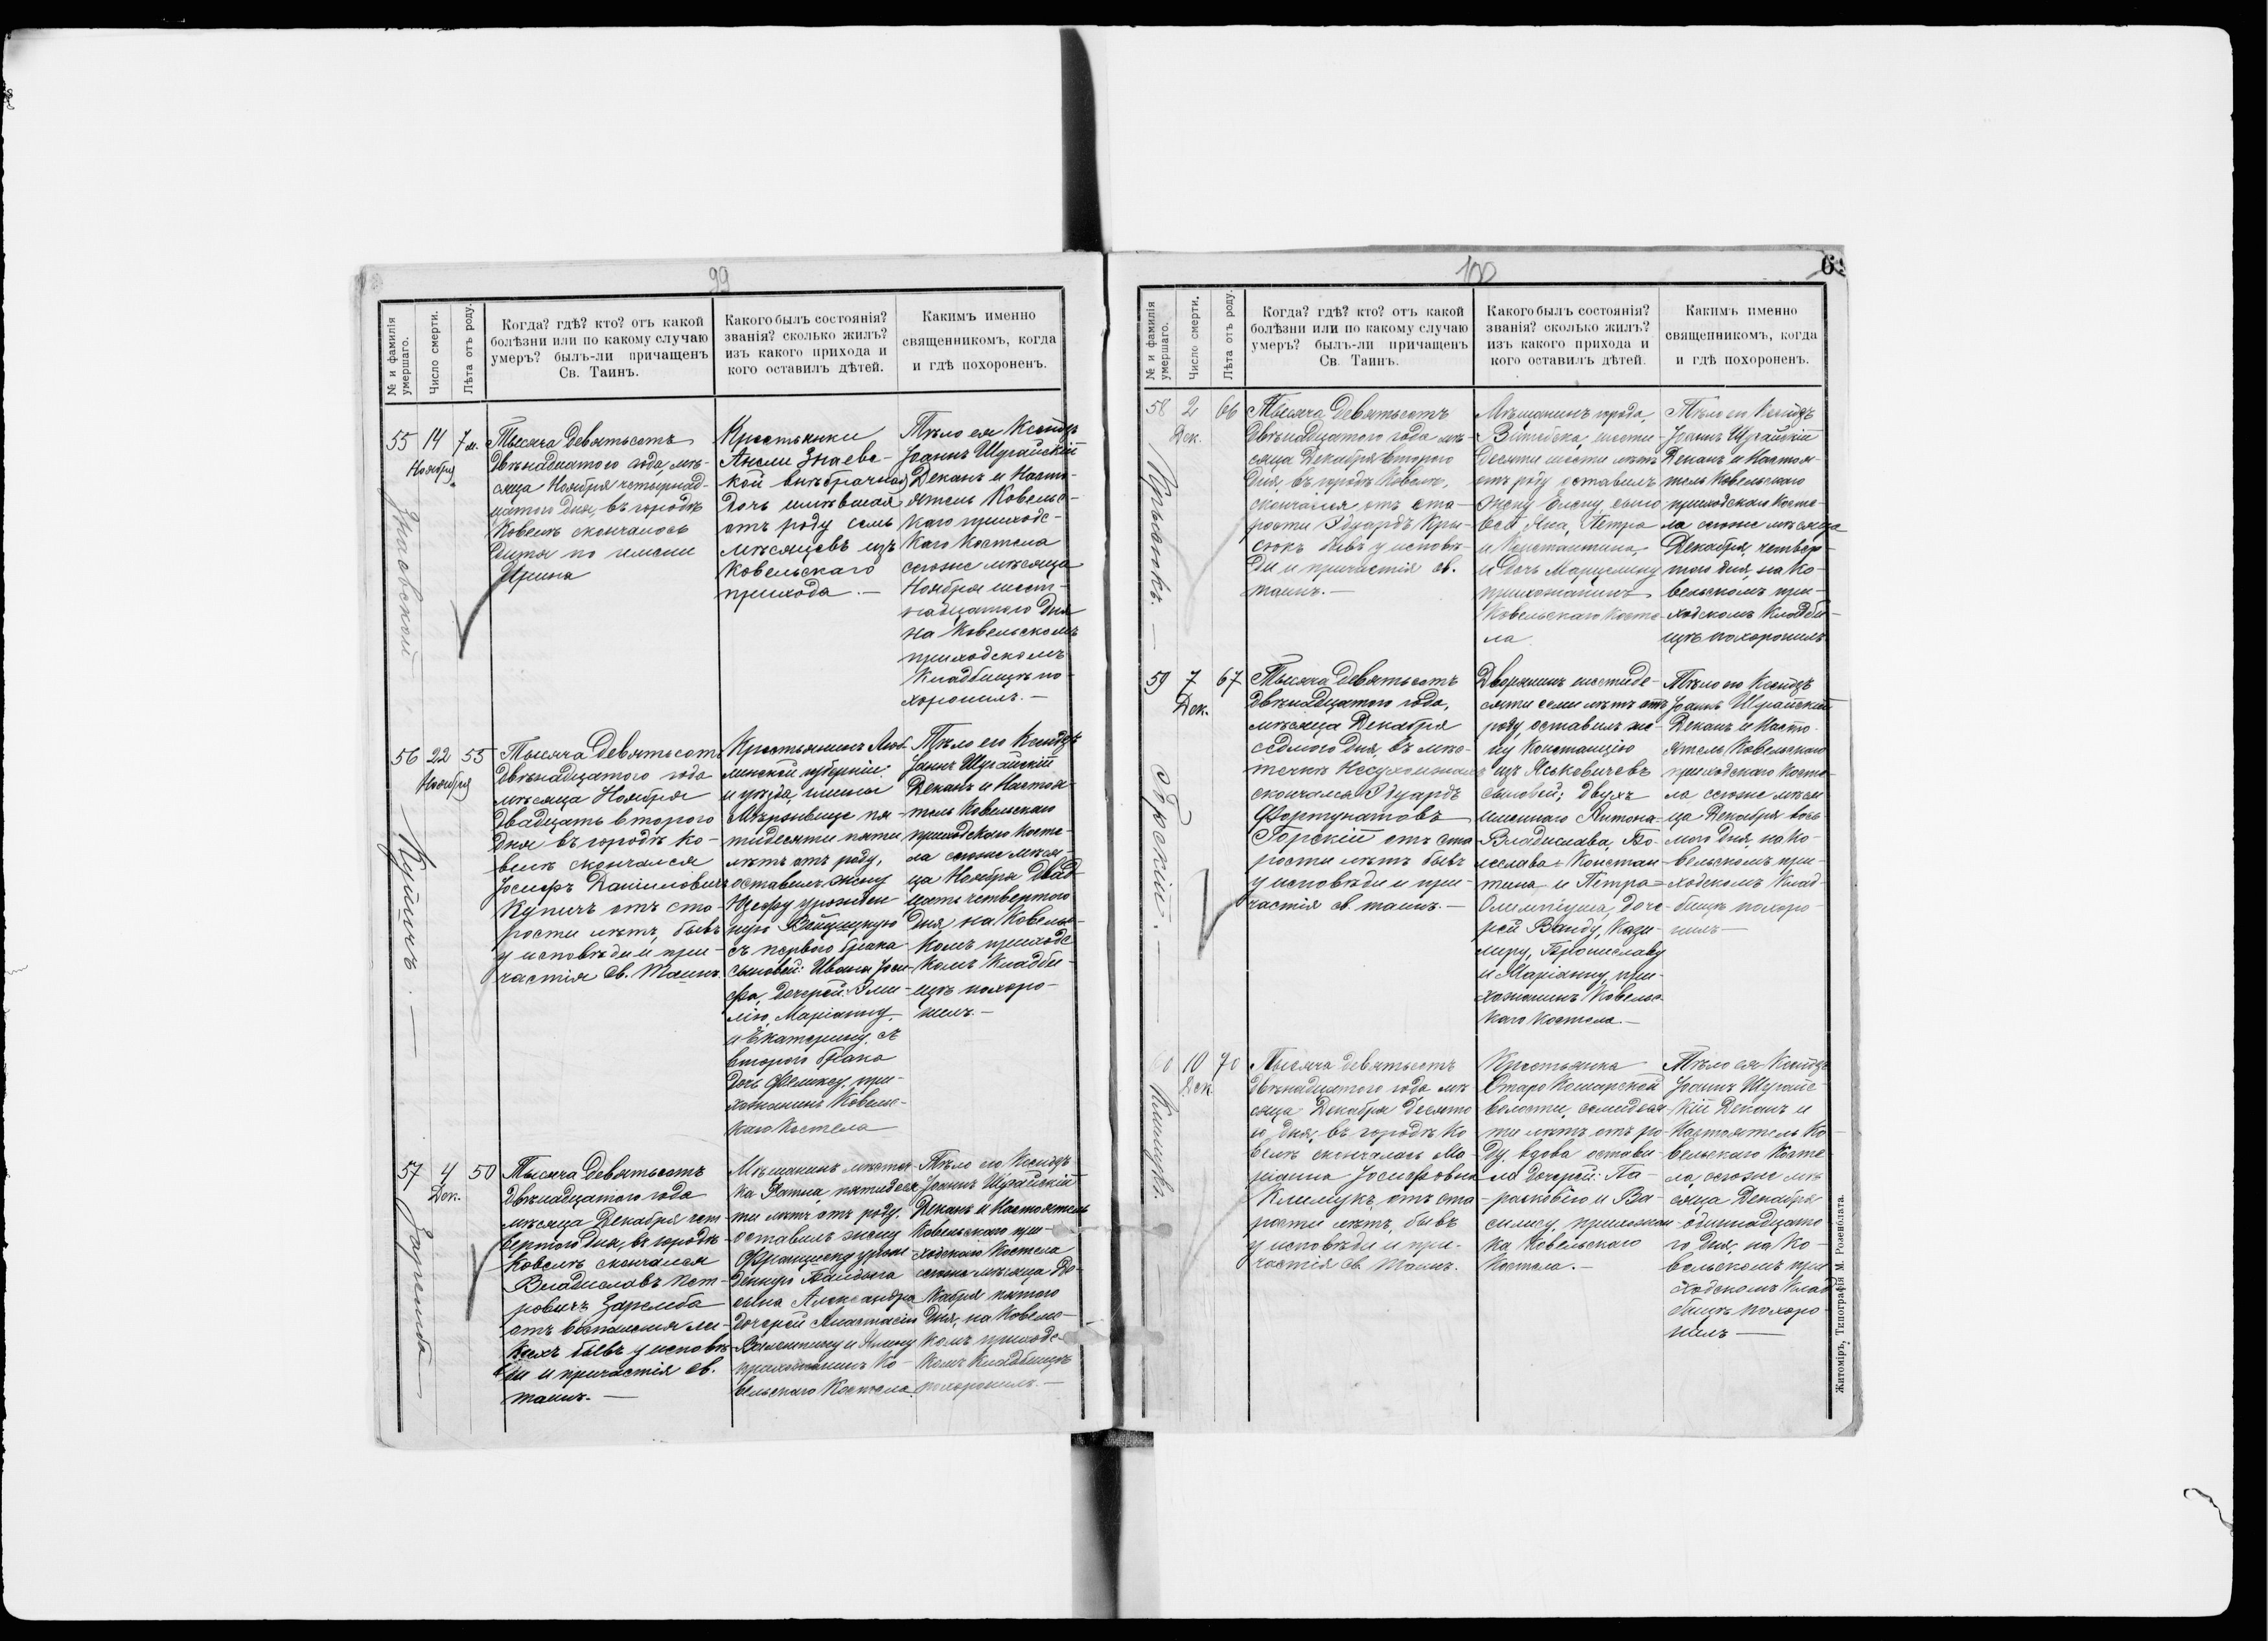 99
№ и фамилія умершаго.
Число смерти.
Лѣта отъ роду.
Когда? гдѣ? кто? отъ какой
болѣзни или по какому случаю
умеръ? былъ-ли причащенъ
Св. Таинъ.
Какого былъ состоянія?
званія? сколько жилъ?
изъ какого прихода и
кого оставилъ дѣтей.
Какимъ именно
священникомъ, когда
и гдѣ похороненъ.
55
14
Ноября
7 м.
Тысяча девятьсотъ
двѣнадцатого года, мѣ-
сяца Ноября четырнад-
цатого дня, въ городѣ
Ковелѣ скончалось
дитя по имени
Ирина
Крестьянки
Знаевс-
кой внѣбрачная
дочь имѣвшая
отъ роду семь
мѣсяцевъ изъ
Ковельскаго
прихода. —
Тѣло ея Ксендзъ
Іоаннъ Шурайскій
Деканъ и Насто-
ятель Ковельс-
каго приходс-
каго Костела
сегоже мѣсяца
Ноября шест-
надцатого дня
на Ковельскомъ
приходскомъ
Кладбищѣ по-
хоронилъ. —
56
22
Ноября
55
Купичъ. —
Тысяча девятьсотъ
двѣнадцатого года
мѣсяца Ноября
двадцать второго
дня въ городѣ Ко-
велѣ скончался
Іосифъ Даніиловичъ
Купичъ отъ ста-
рости лѣтъ, бывъ
у исповѣди и при-
частія Св. Таинъ.
Крестьянинъ Люб-
линской губерніи
и уѣзда, гмины
пя-
тидесяти пяти
лѣтъ отъ роду,
оставилъ жену
урожден-
ную
съ первого брака
сыновей: Ивана Іоси-
фа, дочерей: Эми-
лію, Маріанну
и Екатерину, съ
второго брака
дочь Феликсу, при-
хожанинъ Ковельс-
каго Костела
Тѣло его Ксендзъ
Іоаннъ Шурайскій
Деканъ и Настоя-
тель Ковельскаго
приходскаго Косте-
ла сегоже мѣся-
ца Ноября двад-
цать четвертого
дня, на Ковельс-
комъ приходс-
комъ Кладби-
щѣ похоро-
нилъ. —
57
4
Дек.
50
Заремба
Тысяча девятьсотъ
двѣнадцатого года
мѣсяца Декабря чет-
вертого дня, въ городѣ
Ковелѣ скончался
Владиславъ Пет-
ровичъ Заремба
отъ воспаленія лег-
кихъ бывъ у исповѣ-
ди и причастія св.
таинъ. —
Мѣщанинъ мѣстеч-
ка Ратна, пятидеся-
ти лѣтъ отъ роду,
оставилъ жену
Францишку урож-
денную
сына Александра
дочерей Анастасію
Валентину и Янину
прихожанинъ Ко-
вельскаго Костела.
Тѣло его Ксендзъ
Іоаннъ Шурайскій
Деканъ и Настоятель
Ковельскаго при-
ходскаго Костела
сегоже мѣсяца Де-
кабря пятого
дня, на Ковельс-
комъ приходс-
комъ Кладбищѣ
похоронилъ. —
100
№ и фамилія умершаго.
Число смерти.
Лѣта отъ роду.
Когда? гдѣ? кто? отъ какой
болѣзни или по какому случаю
умеръ? былъ-ли причащенъ
Св. Таинъ.
Какого былъ состоянія?
званія? сколько жилъ?
изъ какого прихода и
кого оставилъ дѣтей.
Какимъ именно
священникомъ, когда
и гдѣ похороненъ.
58
2
Дек.
66
Крысюкъ. —
Тысяча девятьсотъ
двѣнадцатого года мѣ-
сяца Декабря второго
дня въ городѣ Ковелѣ,
скончался отъ ста-
рости Эдуардъ Кры-
сюкъ бывъ у исповѣ-
ди и причастія св.
таинъ. —
Мѣщанинъ города
Витебска, шести-
десяти шести лѣтъ
отъ роду оставилъ
жену Елену, сыно-
вей Яна, Петра
и Константина,
и дочь Марцелину
прихожанинъ
Ковельскаго Косте-
ла
Тѣло его Ксендзъ
Іоаннъ Шурайскій
Деканъ и Настоя-
тель Ковельскаго
приходскаго Косте-
ла сегоже мѣсяца
Декабря, четвер-
того дня, на Ко-
вельскомъ при-
ходскомъ Кладби-
щѣ похоронилъ
59
7
Дек.
67
Горскій. —
Тысяча девятьсотъ
двѣнадцатого года,
мѣсяца Декабря
седьмого дня, въ мѣс-
течкѣ
скончался Эдуардъ
Фортунатовъ
Горскій отъ ста-
рости лѣтъ бывъ
у исповѣди и при-
частія св таинъ. —
Дворянинъ шестиде-
сяти семи лѣтъ отъ
роду, оставилъ же-
ну Констанцію
изъ Яськевичевъ
сыновей; двухъ
имяннаго Антона
Владислава, Бо-
леслава, Констан-
тина и Петра
доче-
рей Ванду, Кази-
миру, Брониславу
и Маріанну, при-
хожанинъ Ковельс-
каго Костела. —
Тѣло его Ксендзъ
Іоаннъ Шурайскій
Деканъ и Насто-
ятель Ковельскаго
приходскаго Косте-
ла сегоже мѣся-
ца Декабря вось-
мого дня, на Ко-
вельскомъ при-
ходскомъ Клад-
бищѣ похоро-
нилъ —
60
10
Дек.
70
Климукъ. —
Тысяча девятьсотъ
двѣнадцатого года мѣ-
сяца Декабря десято-
го дня, въ городѣ Ко-
велѣ скончалась Ма-
ріанна Іосифовна
Климукъ, отъ ста-
рости лѣтъ, бывъ
у исповѣди и при-
частія Св Таинъ.
Крестьянка
Старо Кошарской
волости, семидеся-
ти лѣтъ отъ ро-
ду, вдова остави-
ла дочерей: Па-
расковію и Ва-
силису, прихожан-
ка Ковельскаго
Костела. —
Тѣло ея Ксендзъ
Іоаннъ Шурайс-
кій Деканъ и
Настоятель Ко-
вельскаго Косте-
ла, сегоже мѣ-
сяца Декабря
одиннадцато-
го дня, на Ко-
вельскомъ при-
ходскомъ Клад-
бищѣ похоро-
нилъ —
Житоміръ, Типографія М. Розенблата.